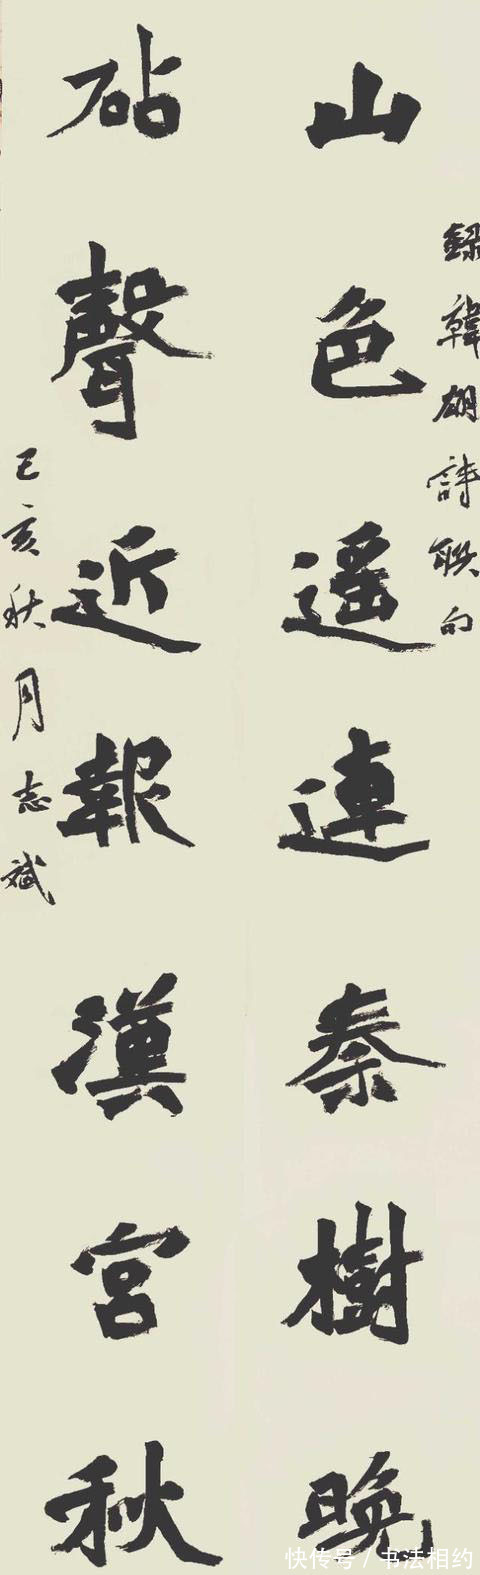 山色遥連秦樹晚
録韓翃詩聯句
砧聲近報漢宮秋
己亥秋月志斌
快传号/书法相约